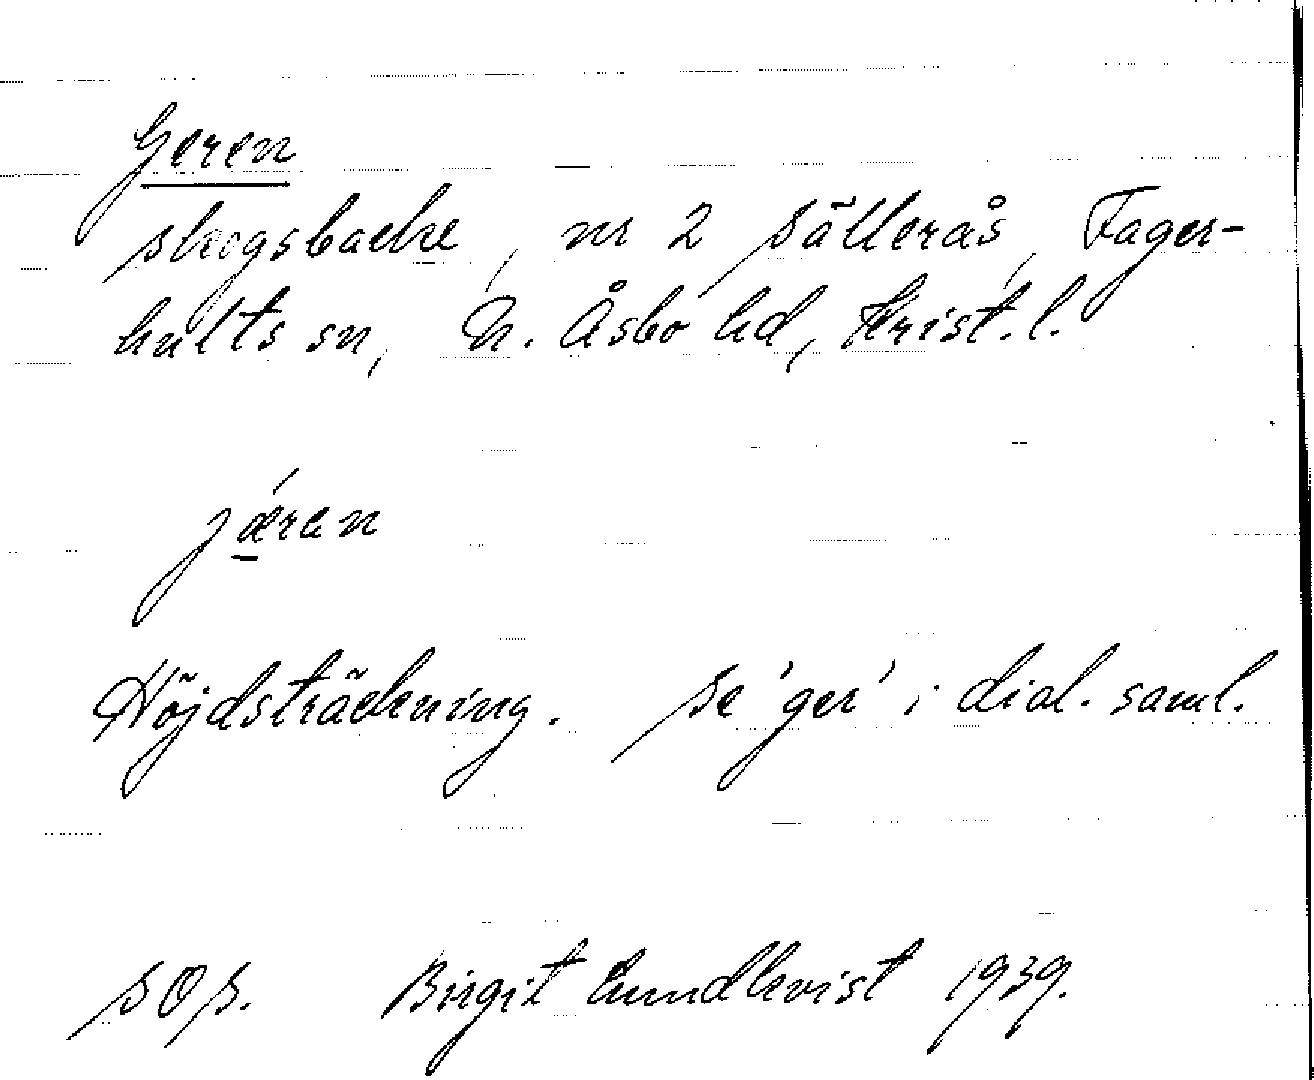 Geren
skogsbacke, nr 2 Sällerås, Fager-
hults sn, N. Åsbo hd, Krist. l.
jǽren
Höjdsträckning. Se 'ger' i dial. saml.
SOS. Birgit Lundkvist 1939.